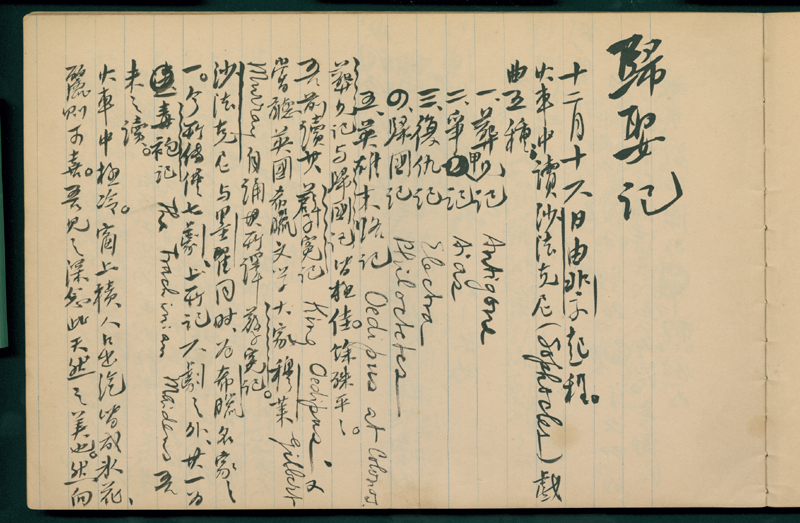 歸娶記
十二月十六日由北京起程。
火車中讀沙法克尼（Sophocles）戲
曲五種：
一、葬兄記 Antigone
二、爭甲記 Aias
三、復仇記 Electra
四、歸國記 Philoctetes
五、英雄末路記 Oedipus at Colonos.
葬兄記與歸國記皆極佳。餘殊平平。
吾前讀其孽冤記 King Oedipus, 又
嘗聽英國希臘文學大家穆萊 Gilbert
Murray 自誦其所譯孽冤記。
沙法克尼與墨翟同時，為希臘名家之
一。今所傳僅七劇，上所記六劇之外，其一為
毒袍記 The Trachinian Maidens 吾
未之讀。
火車中極冷。窗上積人口出汽皆成冰花，
麗則可喜。吾見之深念此天然之美也。然向